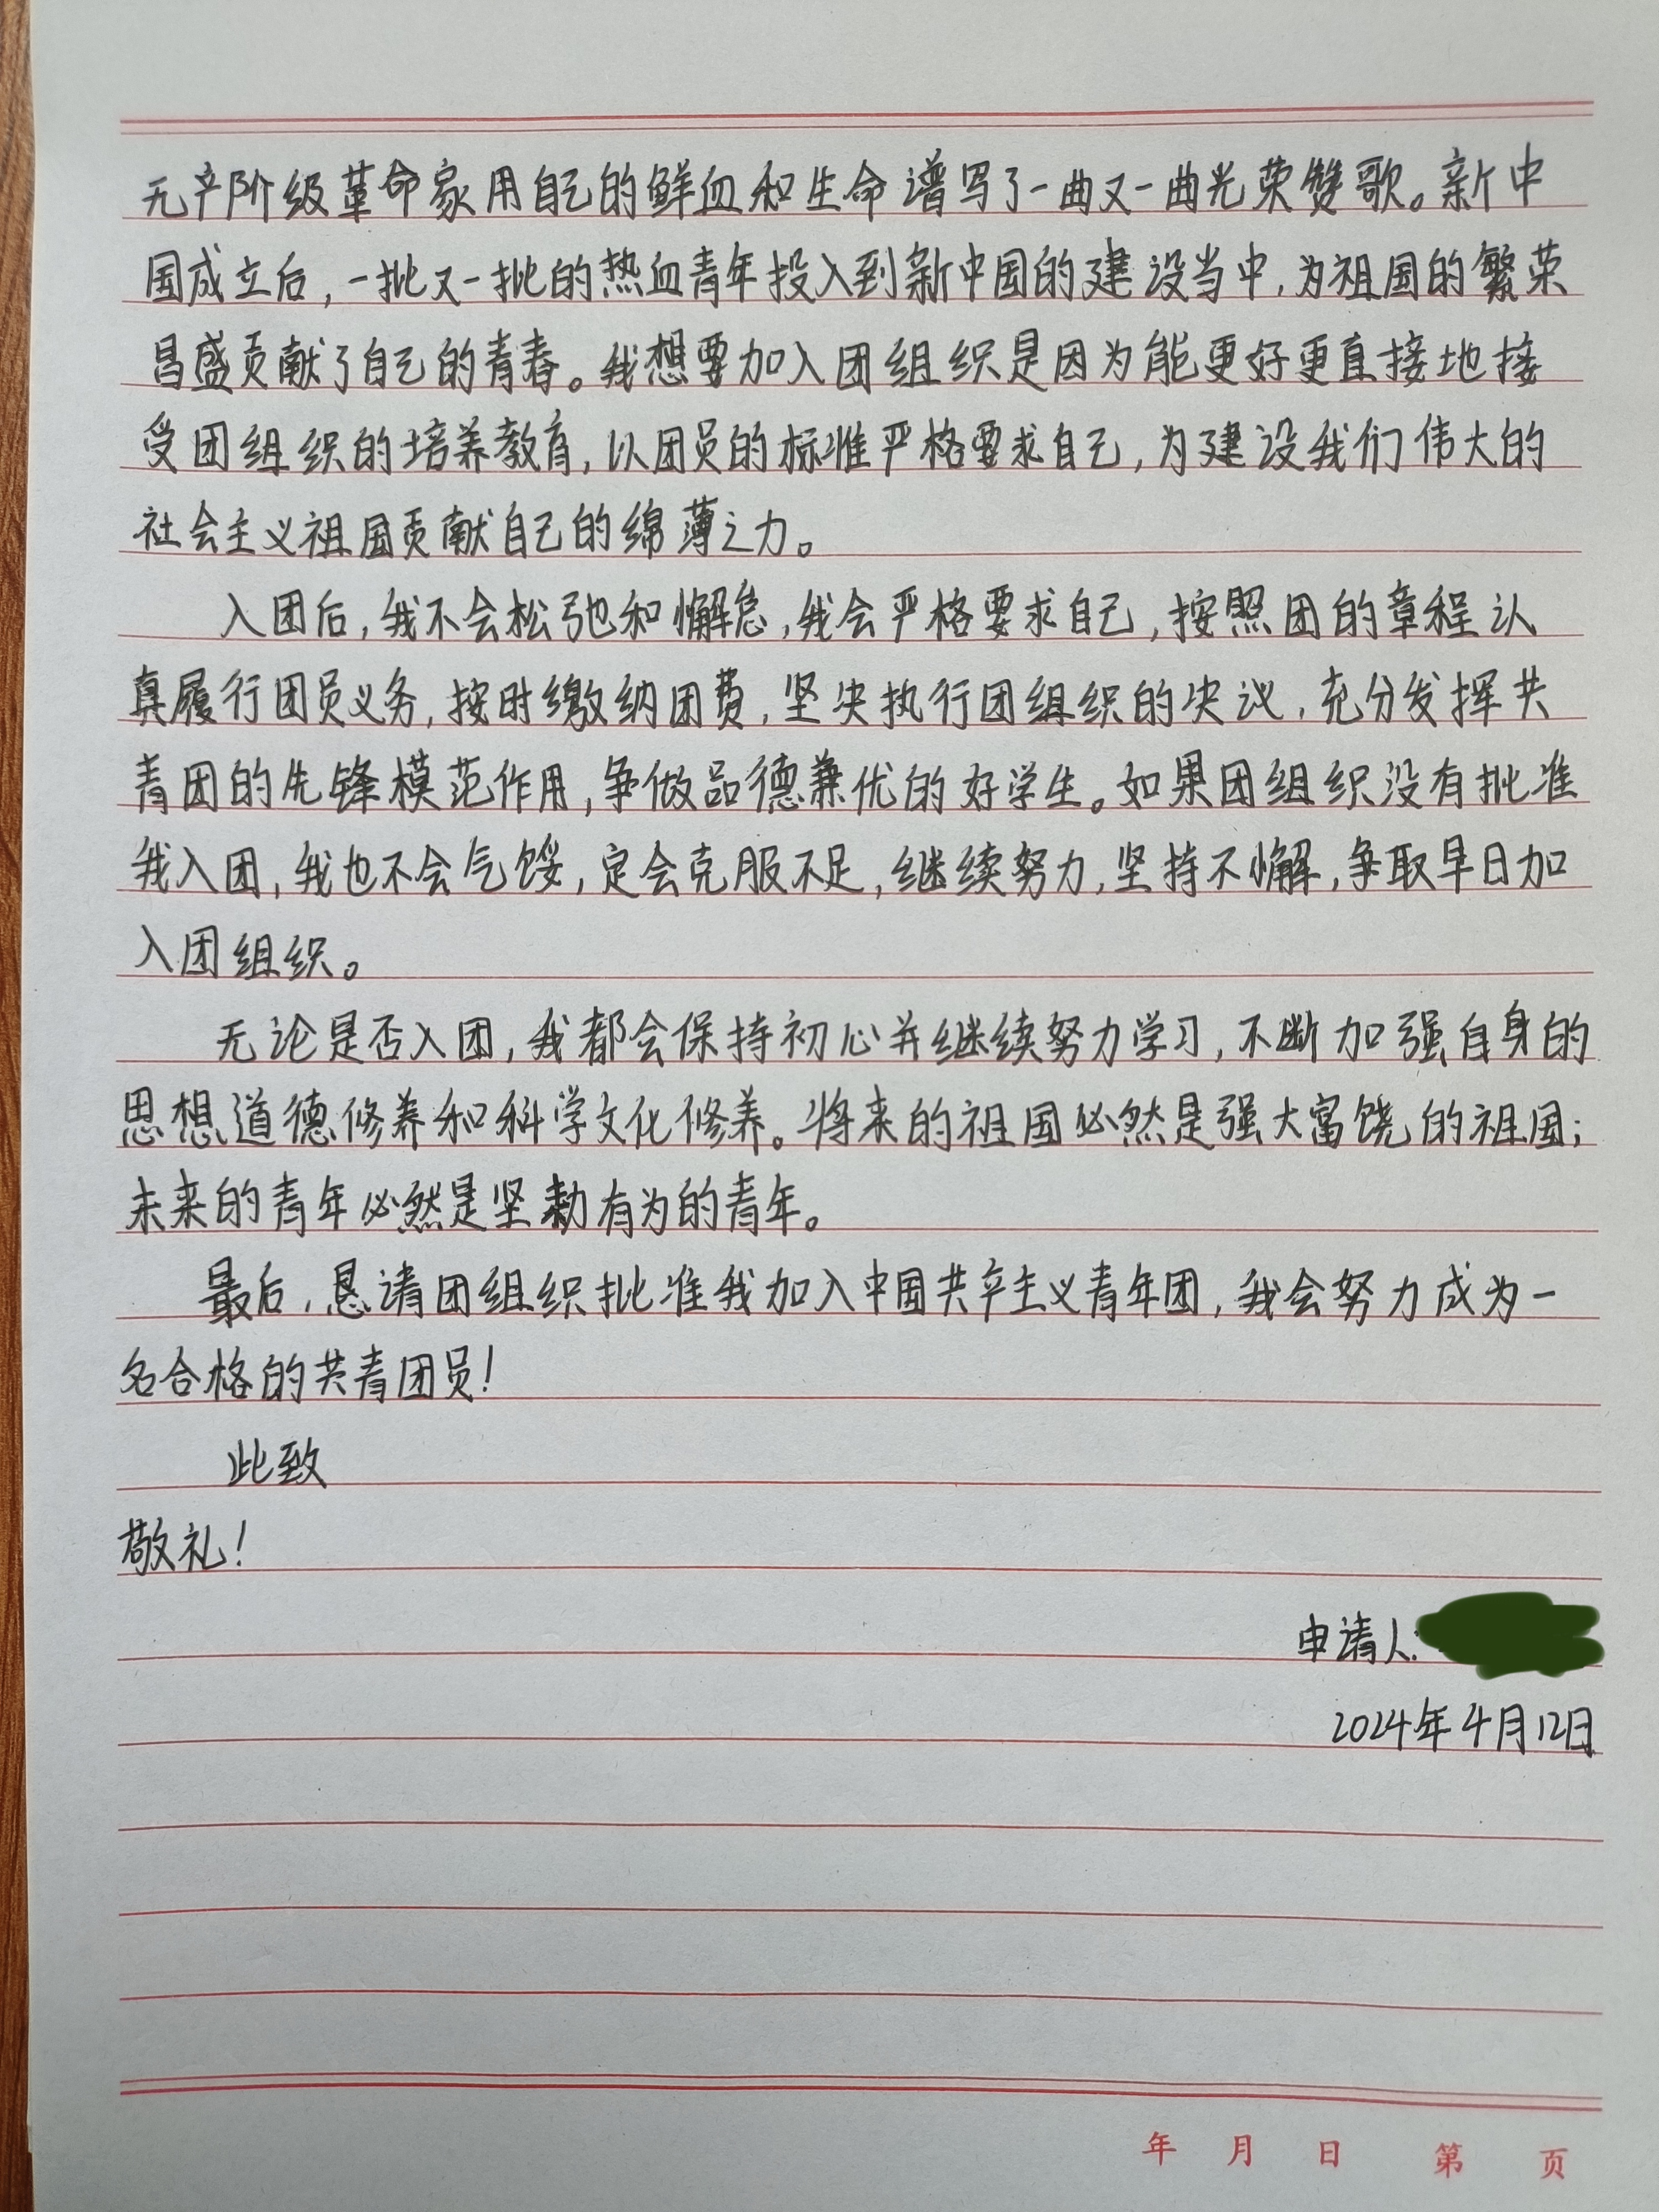 无产阶级革命家用自己的鲜血和生命谱写了一曲又一曲光荣赞歌。新中
国成立后，一批又一批的热血青年投入到新中国的建设当中，为祖国的繁荣
昌盛贡献了自己的青春。我想要加入团组织是因为能更好更直接地接
受团组织的培养教育，以团员的标准严格要求自己，为建设我们伟大的
社会主义祖国贡献自己的绵薄之力。
入团后，我不会松弛和懈怠，我会严格要求自己，按照团的章程认
真履行团员义务，按时缴纳团费，坚决执行团组织的决议，充分发挥共
青团的先锋模范作用，争做品德兼优的好学生。如果团组织没有批准
我入团，我也不会气馁，定会克服不足，继续努力，坚持不懈，争取早日加
入团组织。
无论是否入团，我都会保持初心并继续努力学习，不断加强自身的
思想道德修养和科学文化修养。将来的祖国必然是强大富饶的祖国；
未来的青年必然是坚勤有为的青年。
最后，恳请团组织批准我加入中国共产主义青年团，我会努力成为一
名合格的共青团员！
此致
敬礼！
申请人：
2024年4月12日
年 月 日 第 页